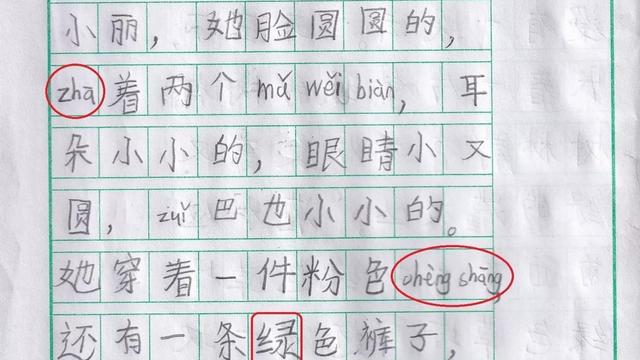 小丽，她脸圆圆的，
zhā着两个mǎ wěi biàn，耳
朵小小的，眼睛小又
圆，zuǐ巴也小小的。
她穿着一件粉色chèng shāng
还有一条绿色裤子，